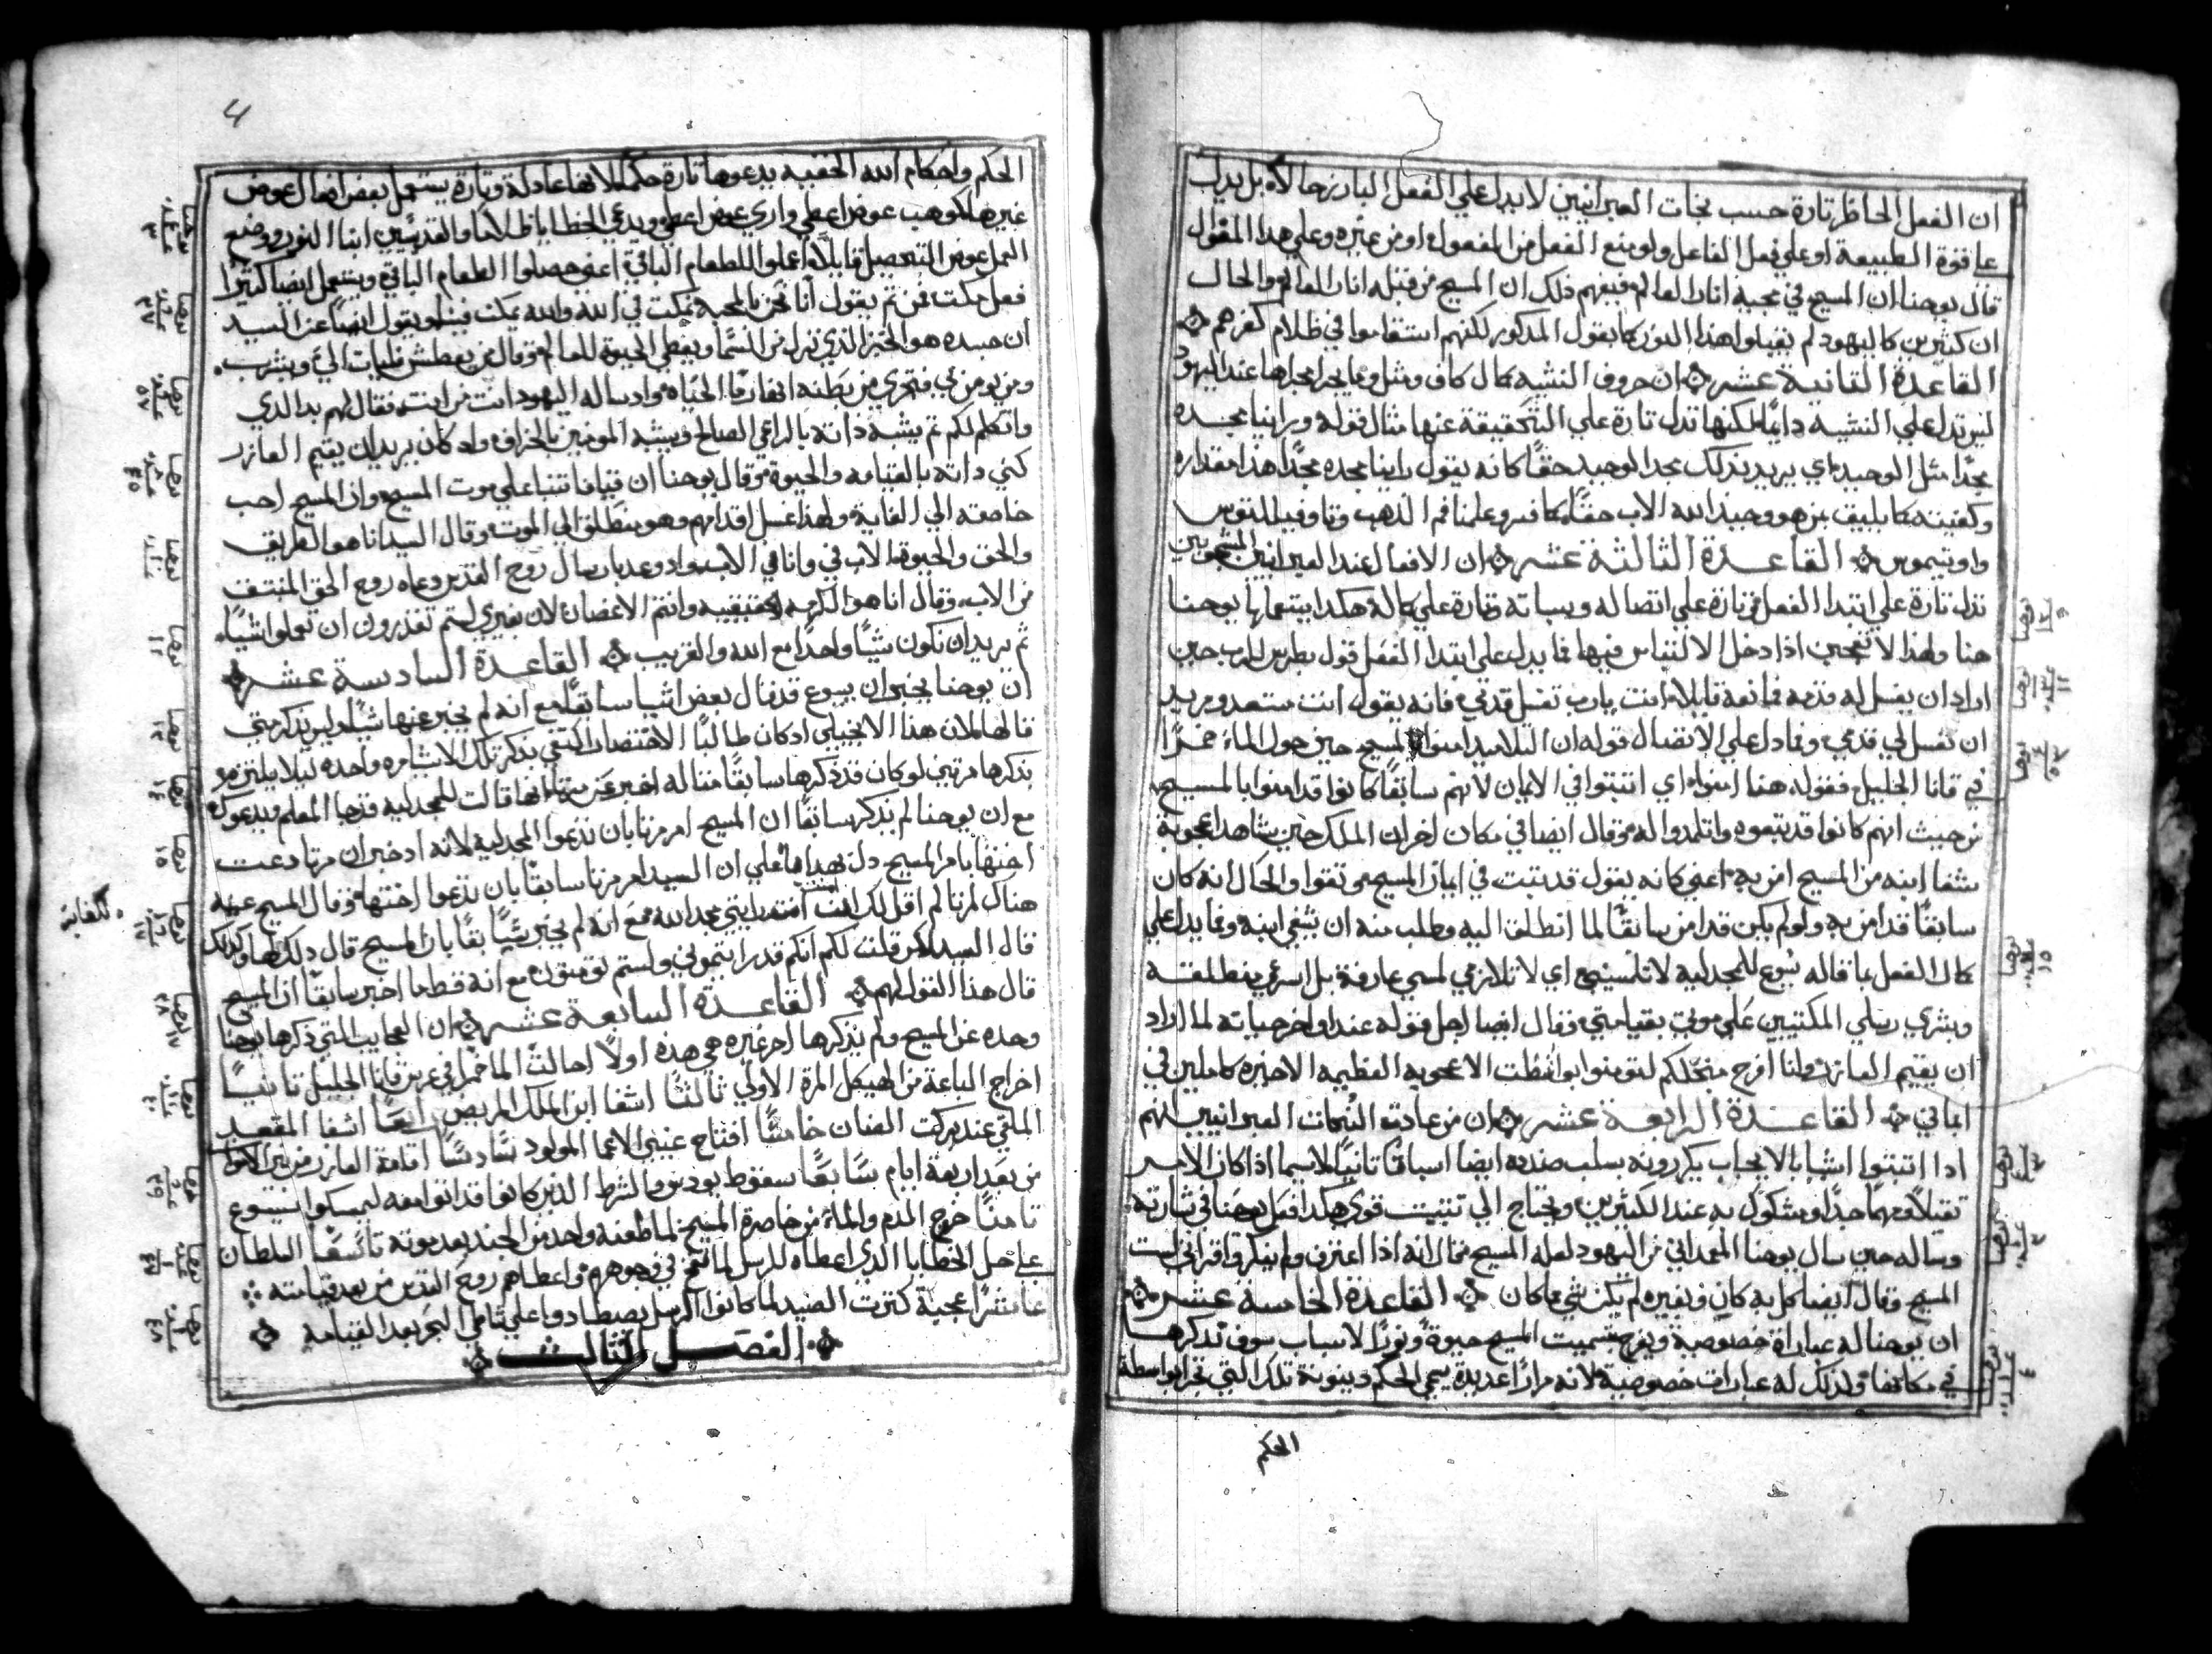 ان الفعل الحاظر تارة حسب نحات العبرانيين لا يدل علي الفعل البارز حالا بل يدل
علي قوة الطبيعة او علي فعل الفاعل ولو منع الفعل من المفعول او من غيره وعلي هذا المقول
قال يوحنا ان المسيح في مجيه انار العالم فيفهم ذلك ان المسيح من قبله انار العالم والحال
ان كثيرين كاليهود لم يقبلوا هذا النور كما يقول المذكور لكنهم استقاموا في ظلام كفرهم
القاعدة الثانية عشر ان حروف التشبيه كمال كاف ومثل وما يجرا مجراها عند اليهود
ليس تدل علي التشبيه دايما لكنها تدل تارة علي التحقيقة عنها مثال قوله وراينا مجده
مجدا مثل الوحيد اي يريد بذلك مجد الوحيد حقا كانه يقول راينا مجده مجدا هذا مقداره
وكفيته كما يليق بمن هو وحيد الله الاب حقا كما فسر وعلمنا فم الذهب وتاوفيلكتوس
واوتيموس القاعدة الثالثة عشر ان الافعال عند العبرانيين المسيحيين
تدل تارة علي ابتدا الفعل وتارة علي اتصاله وسباته وتارة علي كماله هكدا يستعملها يوحنا
هنا ولهذا لا تتعجبن اذا دخل الالتباس فيها فما يدل علي ابتدا الفعل قول بطرس للرب حين
اراد ان يغسل له قدمه فمانعه قايلا انت يارب تغسل قدمي فانه يقول انت مستعد ومريد
ان تغسل لي قدمي وفما دل علي الاتصال قوله ان التلاميد امنوا بالمسيح حين حول الماء خمرا
في قانا الجليل فقوله هنا امنوا اي اتبتوا في الايمان لانهم سابقا كانوا قد امنوا بالمسيح
من حيث انهم كانوا قد يتبعوه واتلمدوا له وقال ايضا في مكان اخر ان الملك حين شاهد اعجوبة
شفا ابنه من المسيح امن به اعني كانه يقول قد تبت في ايمان المسيح وتقوا والحال انه كان
سابقا قد امن به ولو لم يكن قد امن سابقا لما انطلق اليه وطلب منه ان يشفي ابنه وفما يدل علي
كمال الفعل ما قاله يسوع للمجدلية لا تلمسيني اي لا تلازمي لمسي عارفة بل اسرعي منطلقة
وبشري رسلي المكتيبين علي موتي بقيامتي وقال ايضا لاجل قوله عند اواخر حياته لما اراد
ان يقيم العازر وانا افرح منجلكم لتومنوا بواسطت الاعجوبه العظيمه الاخيره كاملين في
ايماني القاعدة الرابعة عشر ان من عادت اللغات العبرانيين انهم
اذا اتبتوا اشيا بالايجاب يكررونه بسلب ضنده ايضا اسباقا تانيا لاسيما اذا كان الامر
تقيلا ومهما جدا ومشكوك به عند الكثيرين ويحتاج الي تتبيت قوي هكدا فعل يوحنا في بشارته
وساله حين سال يوحنا المعمداني من اليهود لعله المسيح فقال انه اذا اعترف ولم ينكر واقر اني لست
المسيح وقال ايضا كل به كان وبغيره لم يكن شي مما كان القاعدة الخامسة عشر
ان يوحنا له عبارات خصوصية ويفرح بتسميت المسيح حيوة ونورا لاسباب سوف نذكرها
في مكانها ولدلك له عبارات خصوصية لانه مرارا عديدة يسمي الحكم دينونة تلك التي تجرا بواسطة
الحكم
4
الحكم واحكام الله الخفيه يدعوها تارة حكما لانها عادلة وتارة يستعمل بعض افعال عوض
غيرها كوهب عوض اعطي واري عوض اعطي ويدعي الخطايا ظلاما والقديسين ابنا النور ووضع
العمل عوض التحصيل قايلا اعملوا للطعام الباقي اعني حصلوا الطعام الباقي ويستعمل ايضا كتيرا
فعل مكت فمن تم يقول اننا نحن بالمحبه نمكت في الله والله يمكت فينا ويقول ايضا عن السيد
ان جسده هو الخبز الذي نزل من السما ويعطي الحيوة للعالم وقال من يعطش فليات الي ويشرب
ومن يومن بي فتجري من بطنه انهار ما الحياه واد ساله اليهود انت من انت فقال لهم بد الذي
واتكلم لكم تم يشبه ذاته بالراعي الصالح ويشبه المومنين بالخراف واد كان يريد ان يقيم العازر
كني داته بالقيامه والحيوة وقال يوحنا ان قيافا تنبا علي موت المسيح وان المسيح احب
خاصته الي الغاية ولهذا غسل اقدامهم وهو منطلق الي الموت وقال السيد انا هو الطريق
والحق والحيوة الاب في وانا في الاب واد وعد بارسال روح القدس دعاه روح الحق المنبتق
من الاب وقال انا هو الكرمه الحقيقيه وانتم الاغصان لان بغيري لستم تقدرون ان تعملوا شيا
تم يريد ان نكون شيا واحدا مع الله والقريب القاعدة السادسة عشر
ان يوحنا يخبر ان يسوع قد قال بعض اشيا سابقا مع انه لم يخبر عنها شيا وليس يذكر متي
قالها لان هذا الانجيلي ادكان طالبا الاختصار اكتفي بذكر تلك الاشيا مره واحده ليلا يلتزم
بذكرها مرتين لو كان قد ذكرها سابقا متاله اخبر عن مرتا انها قالت للمجدلية قد جا المعلم ويدعوك
مع ان يوحنا لم يذكر سابقا ان المسيح امر مرتا بان تدعوا المجدلية لانه اد خبر ان مرتا دعت
اختها بامر المسيح دل بهدا فعلي ان السيد امر مرتا سابقا بان تدعوا اختها وقال المسيح عينه
هناك لمرتا الم اقل لك ان امنت رايتي مجد الله مع انه لم يخبر شيا بقا بان المسيح قال دلك لها وكدلك
قال السيد لكن قلت لكم انكم قد رايتموني ولستم تومنون مع انه قط ما اخبر سابقا ان المسيح
قال هذا القول لهم القاعدة السابعة عشر ان العجايب التي ذكرها يوحنا
وحده عن المسيح ولم يذكرها اخر غيره هي هده اولا احالت الما خمرا في عرس قانا الجليل تانيا
اخراج الباعة من الهيكل المرة الاولي تالتا اشفا ابن الملك المريض رابعا اشفا المقعد
الملقي عند بركت الضان خامسا افتتاح عيني الاعما المولود سادسا اقامة العازر من بين الاموات
من بعد اربعة ايام سابعا سقوط يودس والشرط الذين كانوا قد اتوا معه ليمسكوا يسوع
تامنا خروج الدم والماء من خاصرة المسيح لما طعنه واحد من الجند بعد موته تاسعا السلطان
علي حل الخطايا الذي اعطاه للرسل لما نفخ في وجوههم واعطاهم روح القدس من بعد قيامته
عاشرا عجبة كترت الصيد لما كانوا الرسل يصطادوا علي شاطي البحر بعد القيامة
الفصل التالت